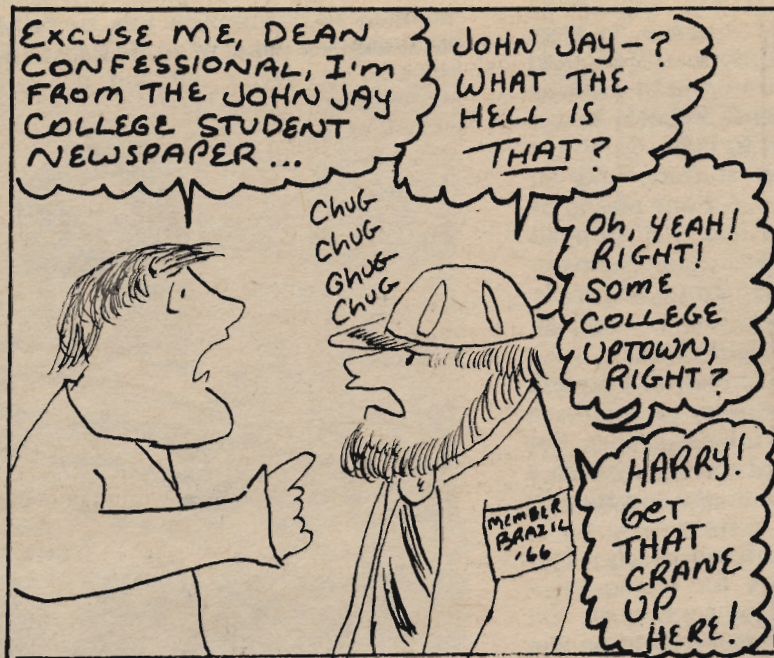 EXCUSE ME, DEAN
CONFESSIONAL, I'm
FROM THE JOHN JAY
COLLEGE STUDENT
NEWSPAPER...
JOHN JAY-?
WHAT THE
HELL IS
THAT?
ChUG
ChUG
GhUG
ChUG
Oh, YEAH!
RIGHT!
SOME
COLLEGE
UPTOWN,
RIGHT?
MEMBER
BRAZIL
'66
HARRY!
GET
THAT
CRANE
UP
HERE!